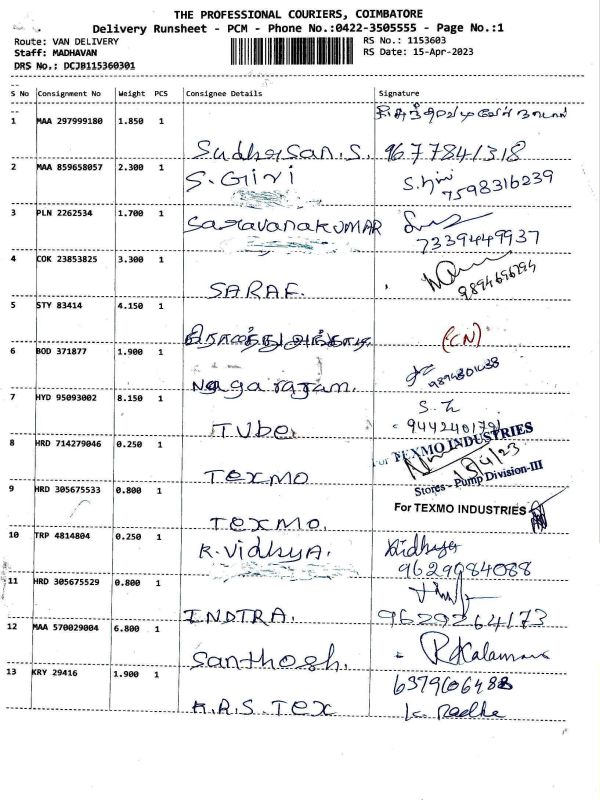 THE PROFESSIONAL COURIERS, COIMBATORE
Delivery Runsheet - PCM - Phone No.:0422-3505555 - Page No.:1
Route: VAN DELIVERY RS No.: 1153603
Staff: MADHAVAN RS Date: 15-Apr-2023
DRS No.: DCJB115360301
S No Consignment No Weight PCS Consignee Details Signature
1 MAA 297999180 1.850 1
Sudharsan.S. 9677841318
2 MAA 859658057 2.300 1 S.Giri
7598316239
3 PLN 2262534 1.700 1 SaravanakUMAR
7339449937
4 COK 23853825 3.300 1
SARAF. 9894696294
5 STY 83414 4.150 1
(CN)
6 BOD 371877 1.900 1
Nagarajam.
7 HYD 95093002 8.150 1
TUbe
8 HRD 714279046 0.250 1 For TEXMO INDUSTRIES
Texmo 15/4/23
Stores - Pump Division-III
9 HRD 305675533 0.800 1 For TEXMO INDUSTRIES
Texmo.
10 TRP 4814804 0.250 1 K.Vidhya. Vidhya
9629084088
11 HRD 305675529 0.800 1
INDTRA. 9629264173
12 MAA 570029004 6.800 1
Santhosh.
13 KRY 29416 1.900 1
K.R.S. Tex K. Radha